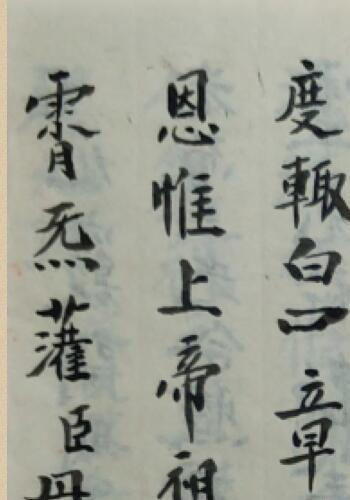 度輙白口章
恩惟上帝祖
霄炁灌臣